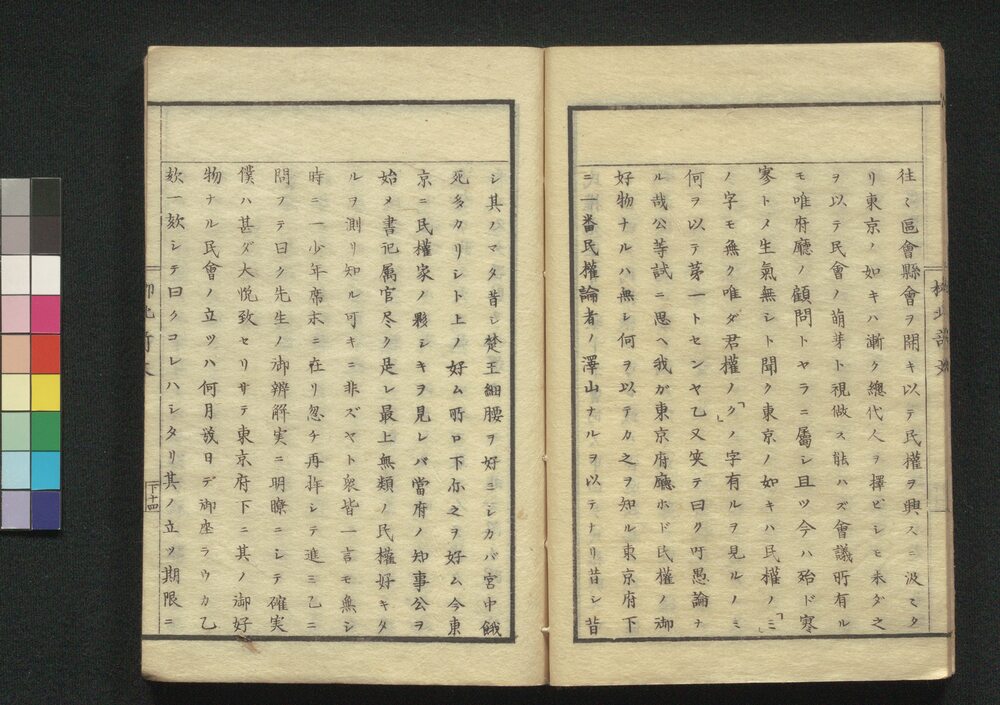 往々區會縣會ヲ開キ以テ民權ヲ興スニ汲ミタ
リ東京ノ如キハ漸ク總代人ヲ擇ビシモ未ダ之
ヲ以テ民會ノ萠芽ト視做ス能ハズ會議所有ル
モ唯府廳ノ顧問トヤラニ屬シ且ツ今ハ殆ド寒
寥トメ生氣無シト聞ク東京ノ如キハ民權ノ「ミ」
ノ字モ無ク唯ダ君權ノ「ク」ノ字有ルヲ見ルノミ
何ヲ以テ苐一トセンヤ乙又笑テ曰ク吁愚論ナ
ル哉公等試ニ思ヘ我ガ東京府廳ホド民權ノ御
好物ナルハ無シ何ヲ以テカ之ヲ知ル東京府下
ニ一畨民權論者ノ澤山ナルヲ以テナリ昔シ昔
シ其ノマタ昔シ楚王細腰ヲ好ミシカバ宮中餓
死多カリシト上ノ好ム所ロ下亦之ヲ好ム今東
京ニ民權家ノ夥シキヲ見レバ當府ノ知事公ヲ
始メ書記属官尽ク是レ最上無類ノ民權好キタ
ルヲ測リ知ル可キニ非ズヤト衆皆一言モ無シ
時ニ一少年席末ニ在リ忽チ再拜シテ進ミ乙ニ
問フテ曰ク先生ノ御辨解実ニ明瞭ニシテ確実
僕ハ甚ダ大悦致セリサテ東京府下ニ其ノ御好
物ナル民會ノ立ツハ何月幾日デ御座ラウカ乙
欬一欬シテ曰クコレハシタリ其ノ立ツ期限ニ
下十四